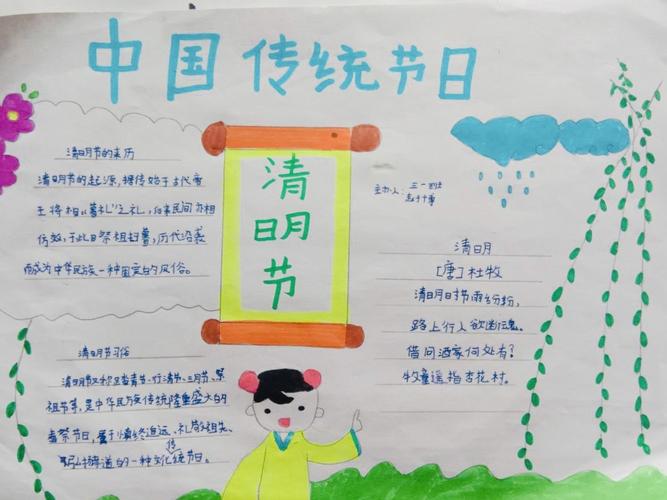 中国传统节日
清明节的来历
清明节的起源,据传始于古代帝
王将相"墓礼"之礼,后来民间亦相
仿效,于此日祭祖扫墓,历代沿袭
而成为中华民族一种固定的风俗。
清明节
主办人:三
清明
[唐]杜牧
清明时节雨纷纷,
路上行人欲断魂。
借问酒家何处有?
牧童遥指杏花村。
清明节习俗
清明节又称踏青节、行清节、三月节、祭
祖节等,是中华民族传统隆重盛大的
春祭节日,属于慎终追远、礼敬祖先、
弘扬孝道的一种传统文化节日。